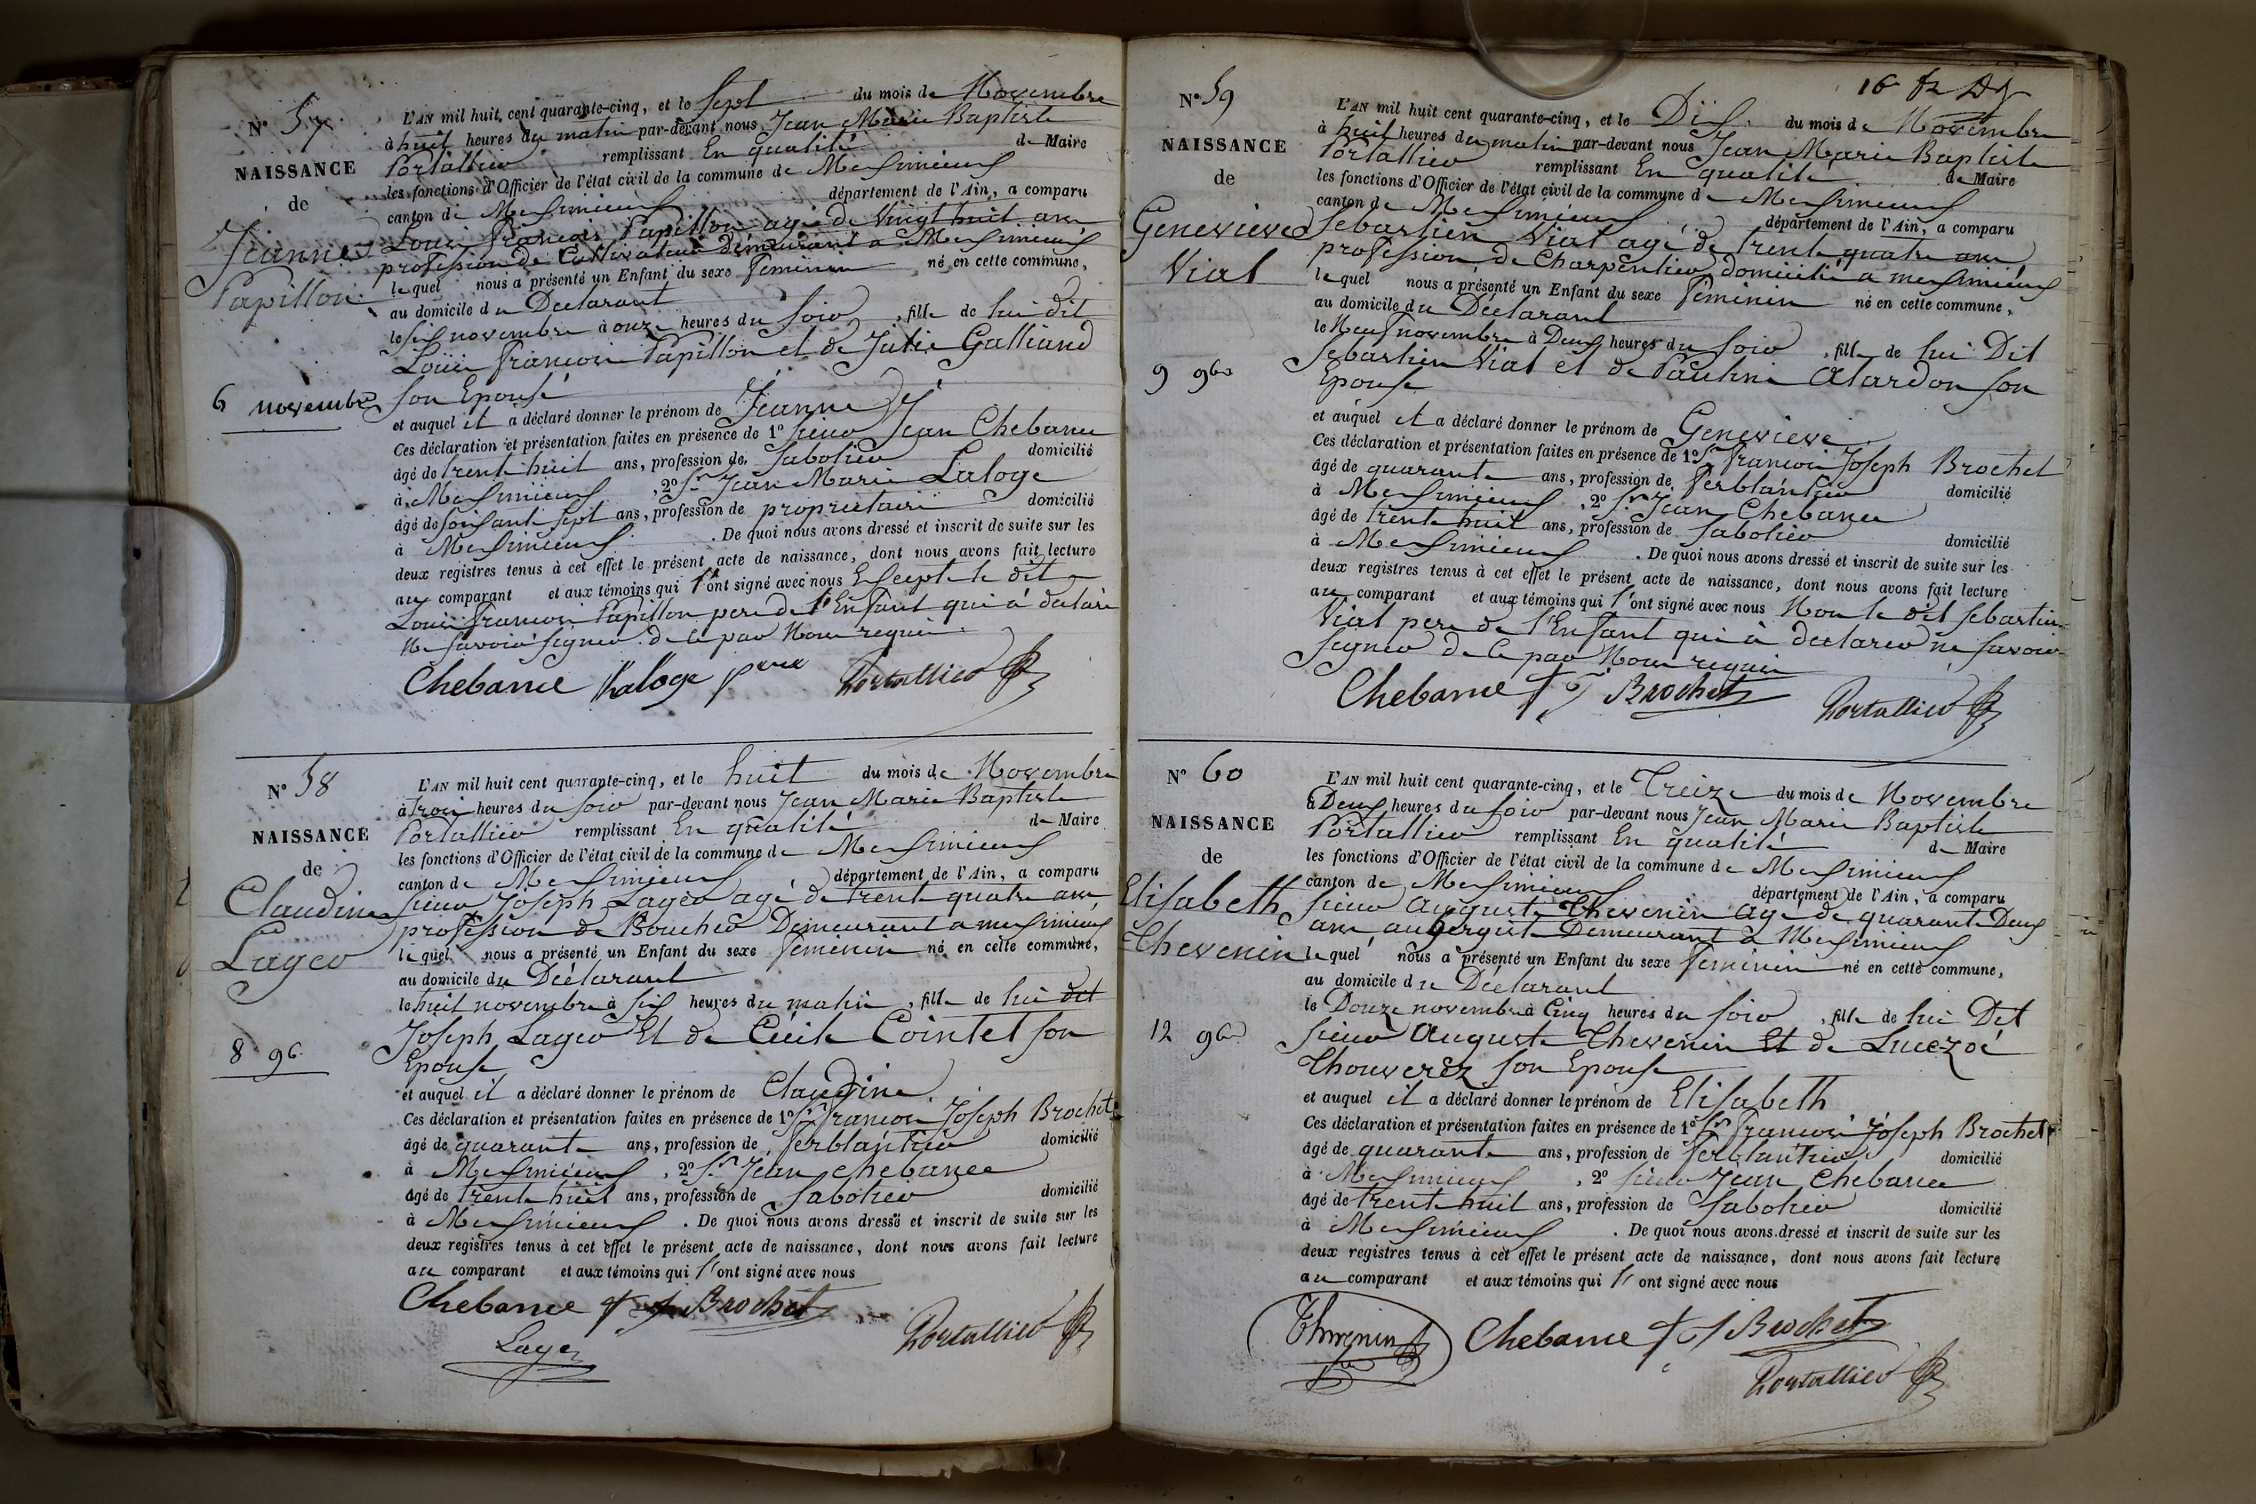 N° 57.
NAISSANCE
de
Jeanne
Papillon
6 novembre
L'AN mil huit cent quarante-cinq, et le Sept du mois de Novembre
à huit heures du matin par-devant nous Jean Marie Baptiste
Portallier remplissant En qualité de Maire
les fonctions d'Officier de l'état civil de la commune de Messimieux
canton de Messimieux département de l'Ain, a comparu
Louis françois Papillon agé de Vingt huit ans
profession de Cultivateur demeurant a Messimieux
lequel nous a présenté un Enfant du sexe feminin né en cette commune,
au domicile du Declarant
le six novembre à onze heures du soir, fille de lui dit
Louis françois Papillon et de Julie Galliand
son Epouse
et auquel il a déclaré donner le prénom de Jeanne
Ces déclaration et présentation faites en présence de 1° sieur Jean Chebance
âgé de trente huit ans, profession de Sabotier domicilié
à Messimieux, 2° Sr Jean Marie Laloge
âgé de soixante sept ans, profession de proprietaire domicilié
à Messimieux. De quoi nous avons dressé et inscrit de suite sur les
deux registres tenus à cet effet le présent acte de naissance, dont nous avons fait lecture
au comparant et aux témoins qui l'ont signé avec nous Excepte le dit
Louis françois Papillon pere de l'Enfant qui a declaré
Ne savoir signer de ce par Nous requis
Chebance Laloge pere Portallier
N° 58
NAISSANCE
de
Claudine
Lager
8 9bre
L'AN mil huit cent quarante-cinq, et le huit du mois de Novembre
à trois heures du soir par-devant nous Jean Marie Baptiste
Portallier remplissant En qualité de Maire
les fonctions d'Officier de l'état civil de la commune de Messimieux
canton de Messimieux département de l'Ain, a comparu
sieur Joseph Lager agé de trente quatre ans
profession de Boucher Demeurant a messimieux
lequel nous a présenté un Enfant du sexe feminin né en cette commune,
au domicile du Déclarant
le huit novembre à six heures du matin, fille de lui dit
Joseph Lager Et de Cécile Cointet son
Epouse
et auquel il a déclaré donner le prénom de Claudine
Ces déclaration et présentation faites en présence de 1° Sr françois Joseph Brochet
âgé de quarante ans, profession de ferblantier domicilié
à Messimieux, 2° Sr Jean Chebance
âgé de trente huit ans, profession de Sabotier domicilié
à Messimieux. De quoi nous avons dressé et inscrit de suite sur les
deux registres tenus à cet effet le présent acte de naissance, dont nous avons fait lecture
au comparant et aux témoins qui l'ont signé avec nous
Chebance f J Brochet Portallier
Lager
16
N° 59
NAISSANCE
de
Genevieve
Vial
9 9bre
L'AN mil huit cent quarante-cinq, et le Dix du mois de Novembre
à huit heures du matin par-devant nous Jean Marie Baptiste
Portallier remplissant En qualité de Maire
les fonctions d'Officier de l'état civil de la commune de Messimieux
canton de Messimieux département de l'Ain, a comparu
Sebastien Vial agé de trente quatre ans
profession de Charpentier domicilié a messimieux
lequel nous a présenté un Enfant du sexe feminin né en cette commune,
au domicile du Déclarant
le Neuf novembre à Deux heures du soir, fille de lui Dit
Sebastien Vial et de Pauline Alardon son
Epouse
et auquel il a déclaré donner le prénom de Genevieve
Ces déclaration et présentation faites en présence de 1° Sr françois Joseph Brochet
âgé de quarante ans, profession de ferblantier domicilié
à Messimieux, 2° Sr Jean Chebance
âgé de trente huit ans, profession de Sabotier domicilié
à Messimieux. De quoi nous avons dressé et inscrit de suite sur les
deux registres tenus à cet effet le présent acte de naissance, dont nous avons fait lecture
au comparant et aux témoins qui l'ont signé avec nous Non le dit sebastien
Vial pere de l'Enfant qui à declarer ne savoir
signer de ce par Nous requis
Chebance f J Brochet Portallier
N° 60
NAISSANCE
de
Elisabeth
Thevenin
12 9bre
L'AN mil huit cent quarante-cinq, et le Treize du mois de Novembre
à Deux heures du soir par-devant nous Jean Marie Baptiste
Portallier remplissant En qualité de Maire
les fonctions d'Officier de l'état civil de la commune de Messimieux
canton de Messimieux département de l'Ain, a comparu
sieur Auguste Thevenin agé de quarante Deux
ans aubergiste Demeurant à Messimieux
lequel nous a présenté un Enfant du sexe feminin né en cette commune,
au domicile du Déclarant
le Douze novembre à Cinq heures du soir, fille de lui Dit
sieur Auguste Thevenin Et de Lucezoé
Thouverez son Epouse
et auquel il a déclaré donner le prénom de Elisabeth
Ces déclaration et présentation faites en présence de 1° Sr françois Joseph Brochet
âgé de quarante ans, profession de ferblantier domicilié
à Messimieux, 2° sieur Jean Chebance
âgé de trente huit ans, profession de Sabotier domicilié
à Messimieux. De quoi nous avons dressé et inscrit de suite sur les
deux registres tenus à cet effet le présent acte de naissance, dont nous avons fait lecture
au comparant et aux témoins qui l'ont signé avec nous
Thevenin Chebance f J Brochet
Portallier